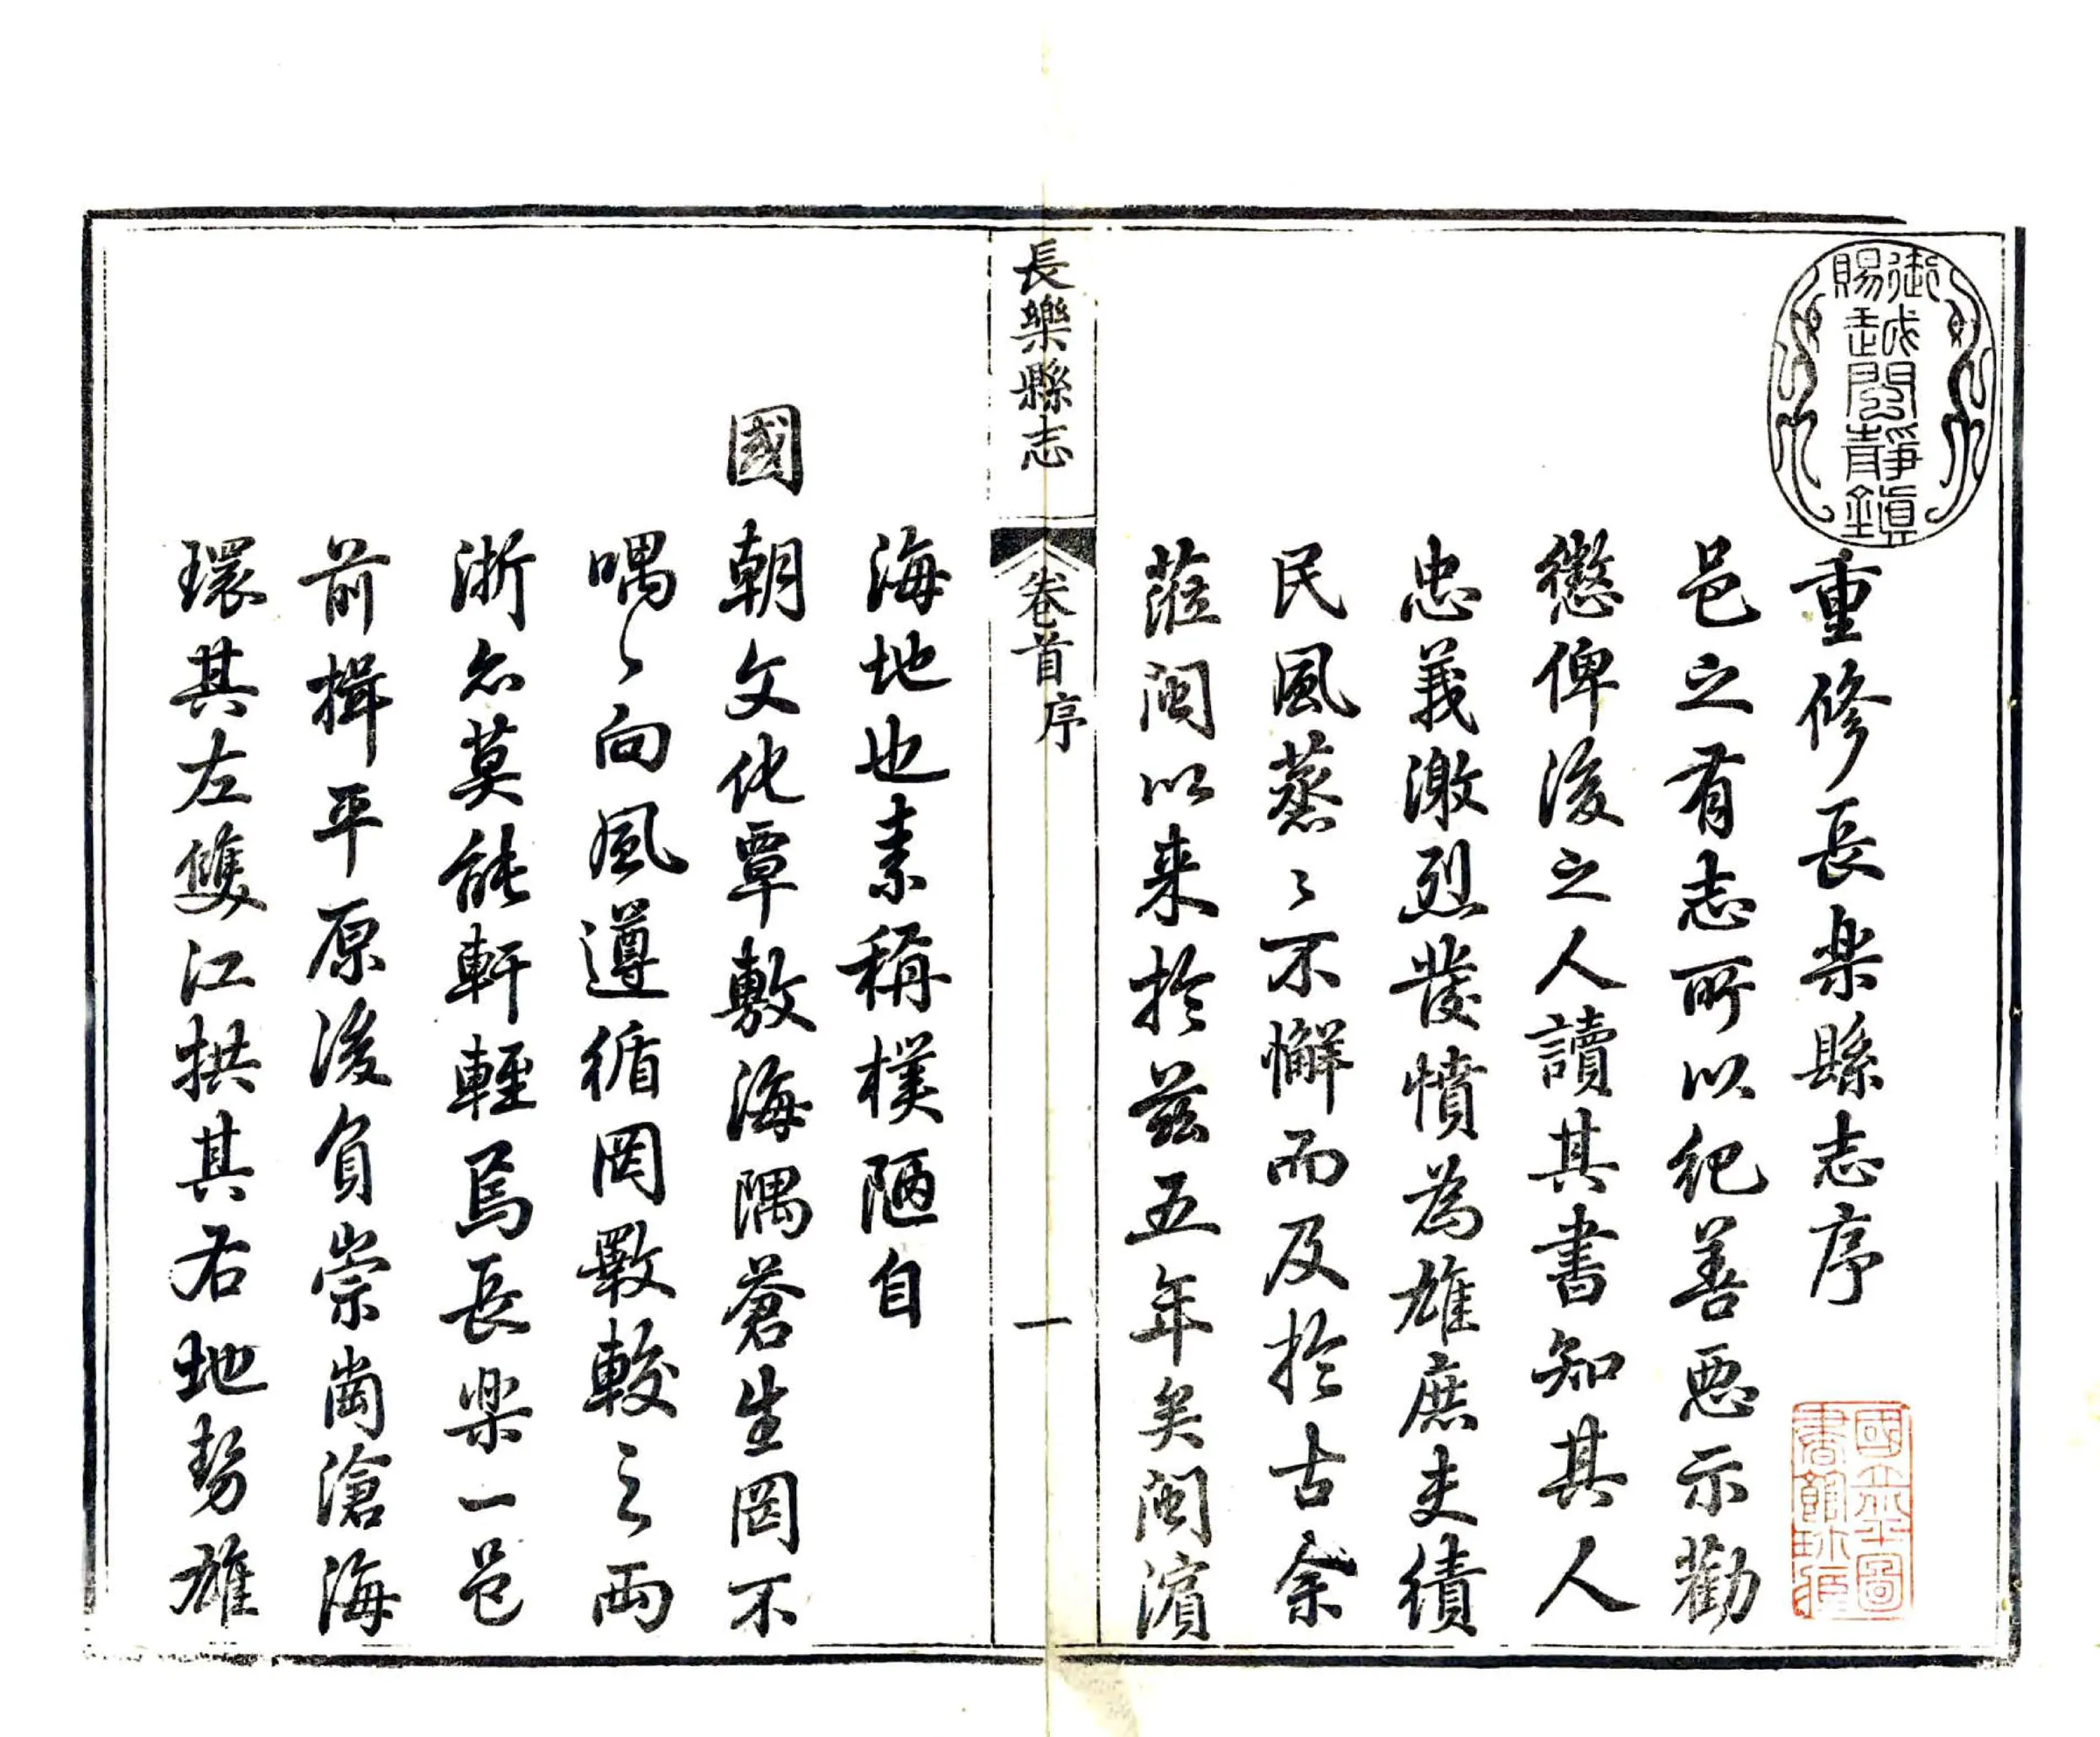 御賜
越閩靜鎮
重修長樂縣志序
邑之有志所以紀善惡示勸
懲俾後之人讀其書知其人
忠義激烈發憤為雄庶吏績
民風蒸〻不懈而及於古余
蒞閩以来於兹五年矣閩濱
長樂縣志
卷首
序
一
海地也素稱樸陋自
國朝文化覃敷海隅蒼生罔不
喁〻向風遵循罔斁較之兩
浙尓莫能軒輊焉長樂一邑
前揖平原後負崇崗滄海
環其左雙江拱其右地勢雄
國立北平圖
書館珍藏